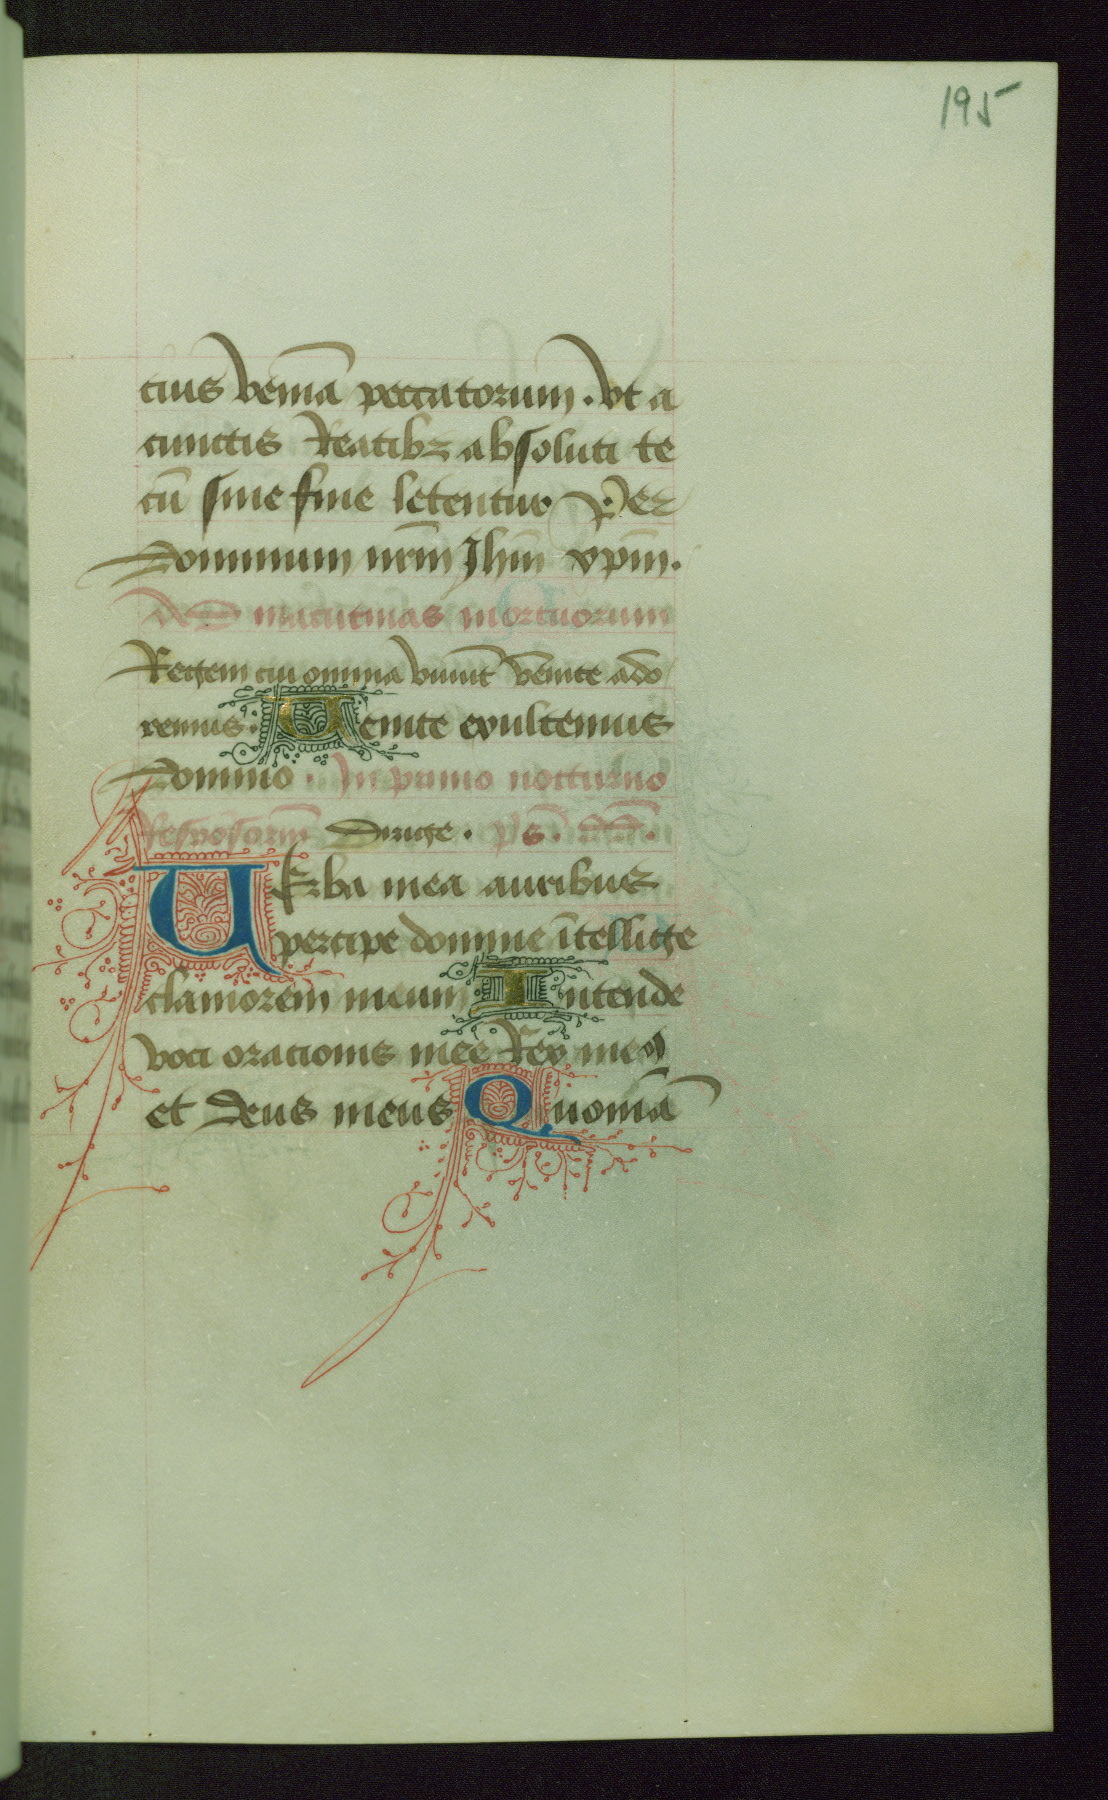 195
cius veniā peccatorum. vt a
cunctis Reatibꝫ absoluti te
cū sine fine letentur Per
Dominum nrm̄ Jhm̄ xpm̄.
AD matutinas mortuorum
Regem cui omnia viuūt Venite ado
remus. Uenite exultemus
Domino. In primo nocturno
Dirige. ps.
UErba mea auribus
percipe domine ītellige
clamorem meum Intende
voci orationis mee Rex meꝰ
et Deus meus Quoniā